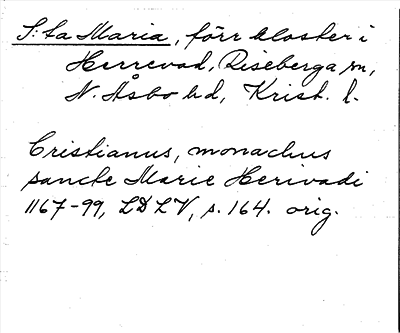 S:ta Maria, förr kloster i
Herrevad, Riseberga sn,
N. Åsbo hd, Krist. l.
Cristianus, monachus
sancte Marie Herivadi
1167-99, LDLV, s. 164. orig.